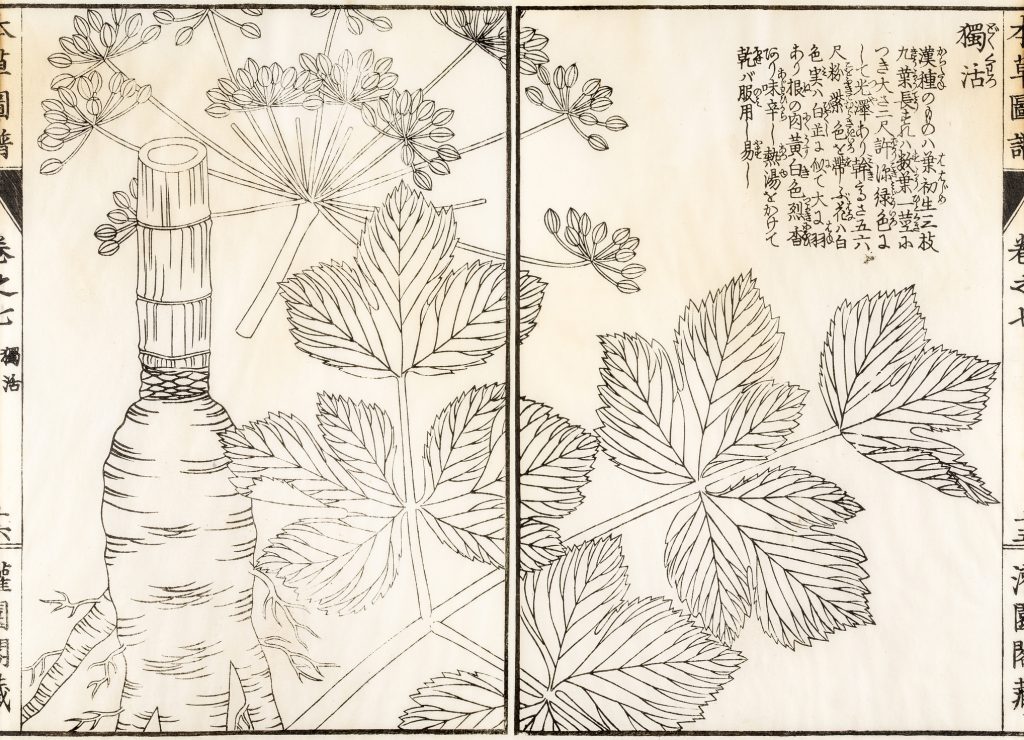 本草圖譜
卷之七
十五
獨活
漢種のものハ葉初生三枝
九葉長ずれハ数葉一茎に
つき大さ三尺許深緑色に
して光澤あり幹高さ五六
尺粉紫色を帯ふ花ハ白
色実ハ白芷に似て大に羽
あり根の肉黄白色烈香
あり味辛し熱湯をかけて
乾バ服用し易し
本草圖譜
卷之七
獨活
十六
灌園閣藏